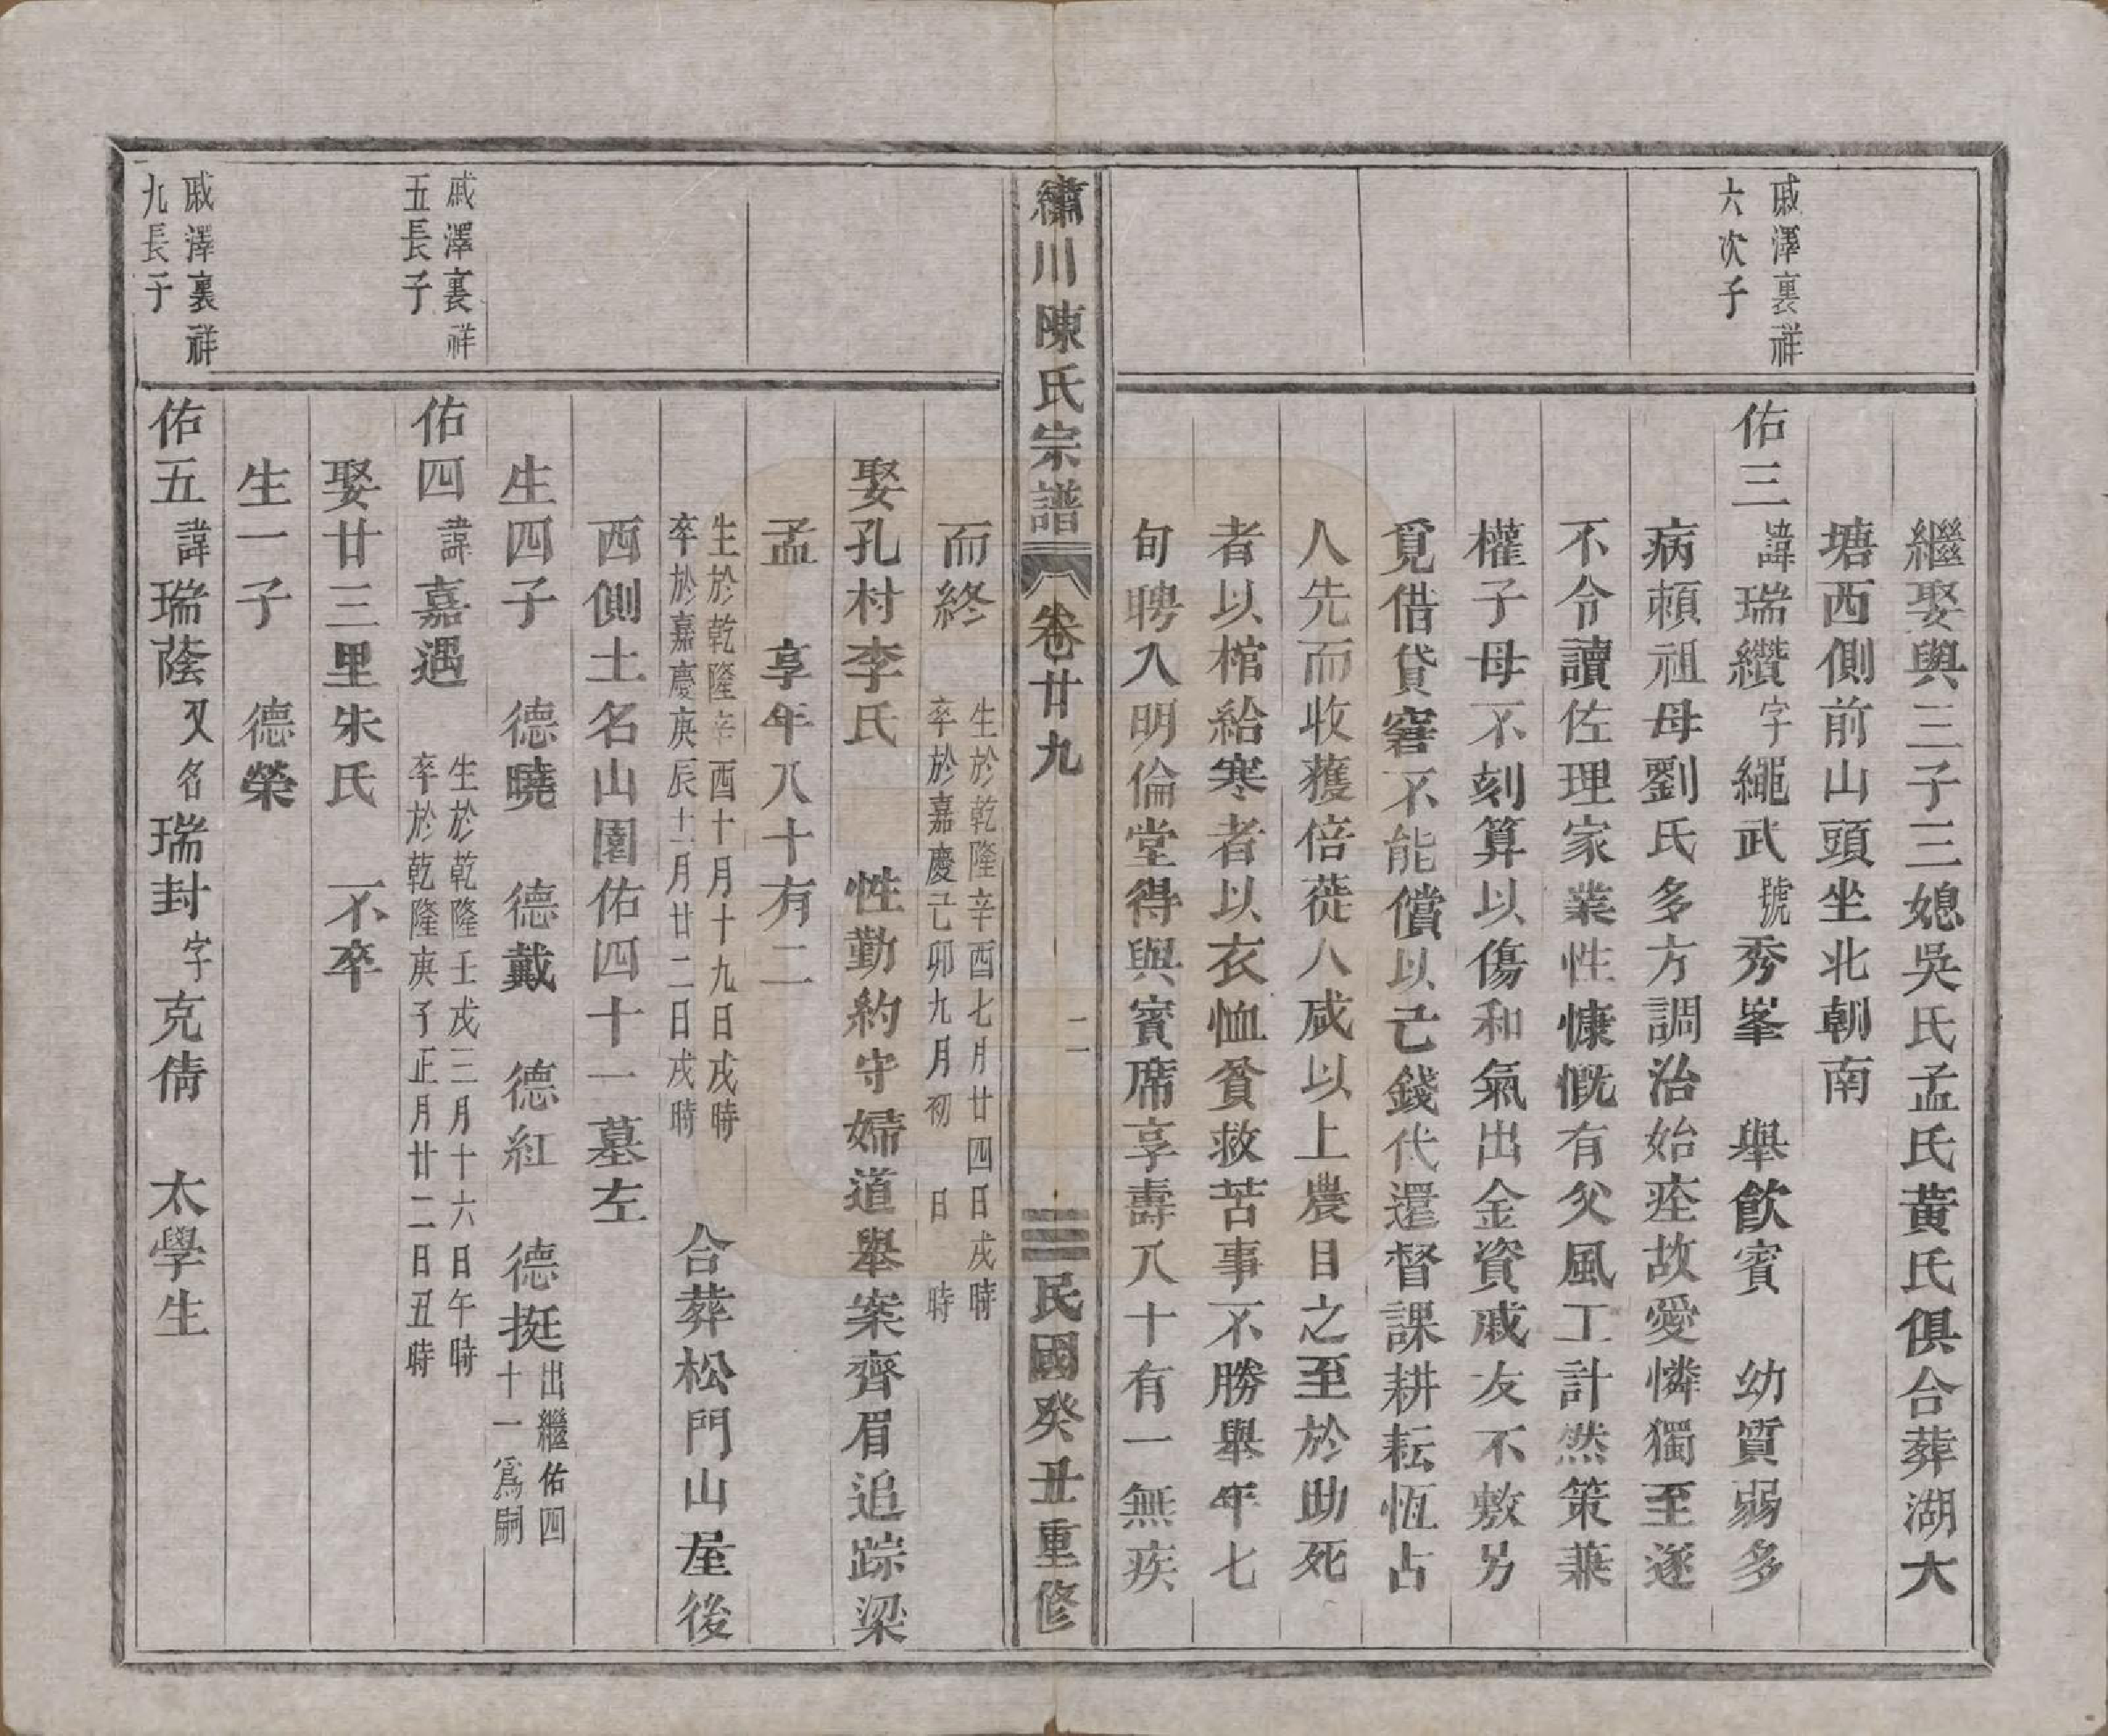 繼娶與三子三媳吳氏孟氏黃氏俱合葬湖大
塘西側前山頭坐北朝南
戚澤裏祥
六次子
佑三諱瑞纘字繩武號秀峯　舉飲賓　幼質弱多
病頼祖母劉氏多方調治始痊故愛憐獨至遂
不令讀佐理家業性慷慨有父風工計然策蒹
權子母不刻算以傷和氣出金資戚友不敷另
覓借貸窘不能償以己錢代還督課耕耘恆占
人先而收獲倍蓰人咸以上農目之至於助死
者以棺給寒者以衣恤貧救苦事不勝舉年七
旬聘入明倫堂得與賓席享壽八十有一無疾
繡川陳氏宗譜　卷廿九　二　民國癸丑重修
而終
生於乾隆辛酉七月廿四日戌時
卒於嘉慶己卯九月初　日　時
娶孔村李氏　性勤約守婦道舉案齊眉追踪梁
孟　享年八十有二
生於乾隆辛酉十月十九日戌時
卒於嘉慶庚辰十二月廿二日戌時
合葬松門山屋後
西側土名山園佑四十一墓左
生四子　德曉　德戴　德紅　德挺
出繼佑四
十一爲嗣
戚澤裏祥
五長子
佑四諱嘉遇
生於乾隆壬戌三月十六日午時
卒於乾隆庚子正月廿二日丑時
娶廿三里朱氏　不卒
生一子　德榮
戚澤裏祥
九長子
佑五諱瑞蔭又名瑞封字克倩　太學生